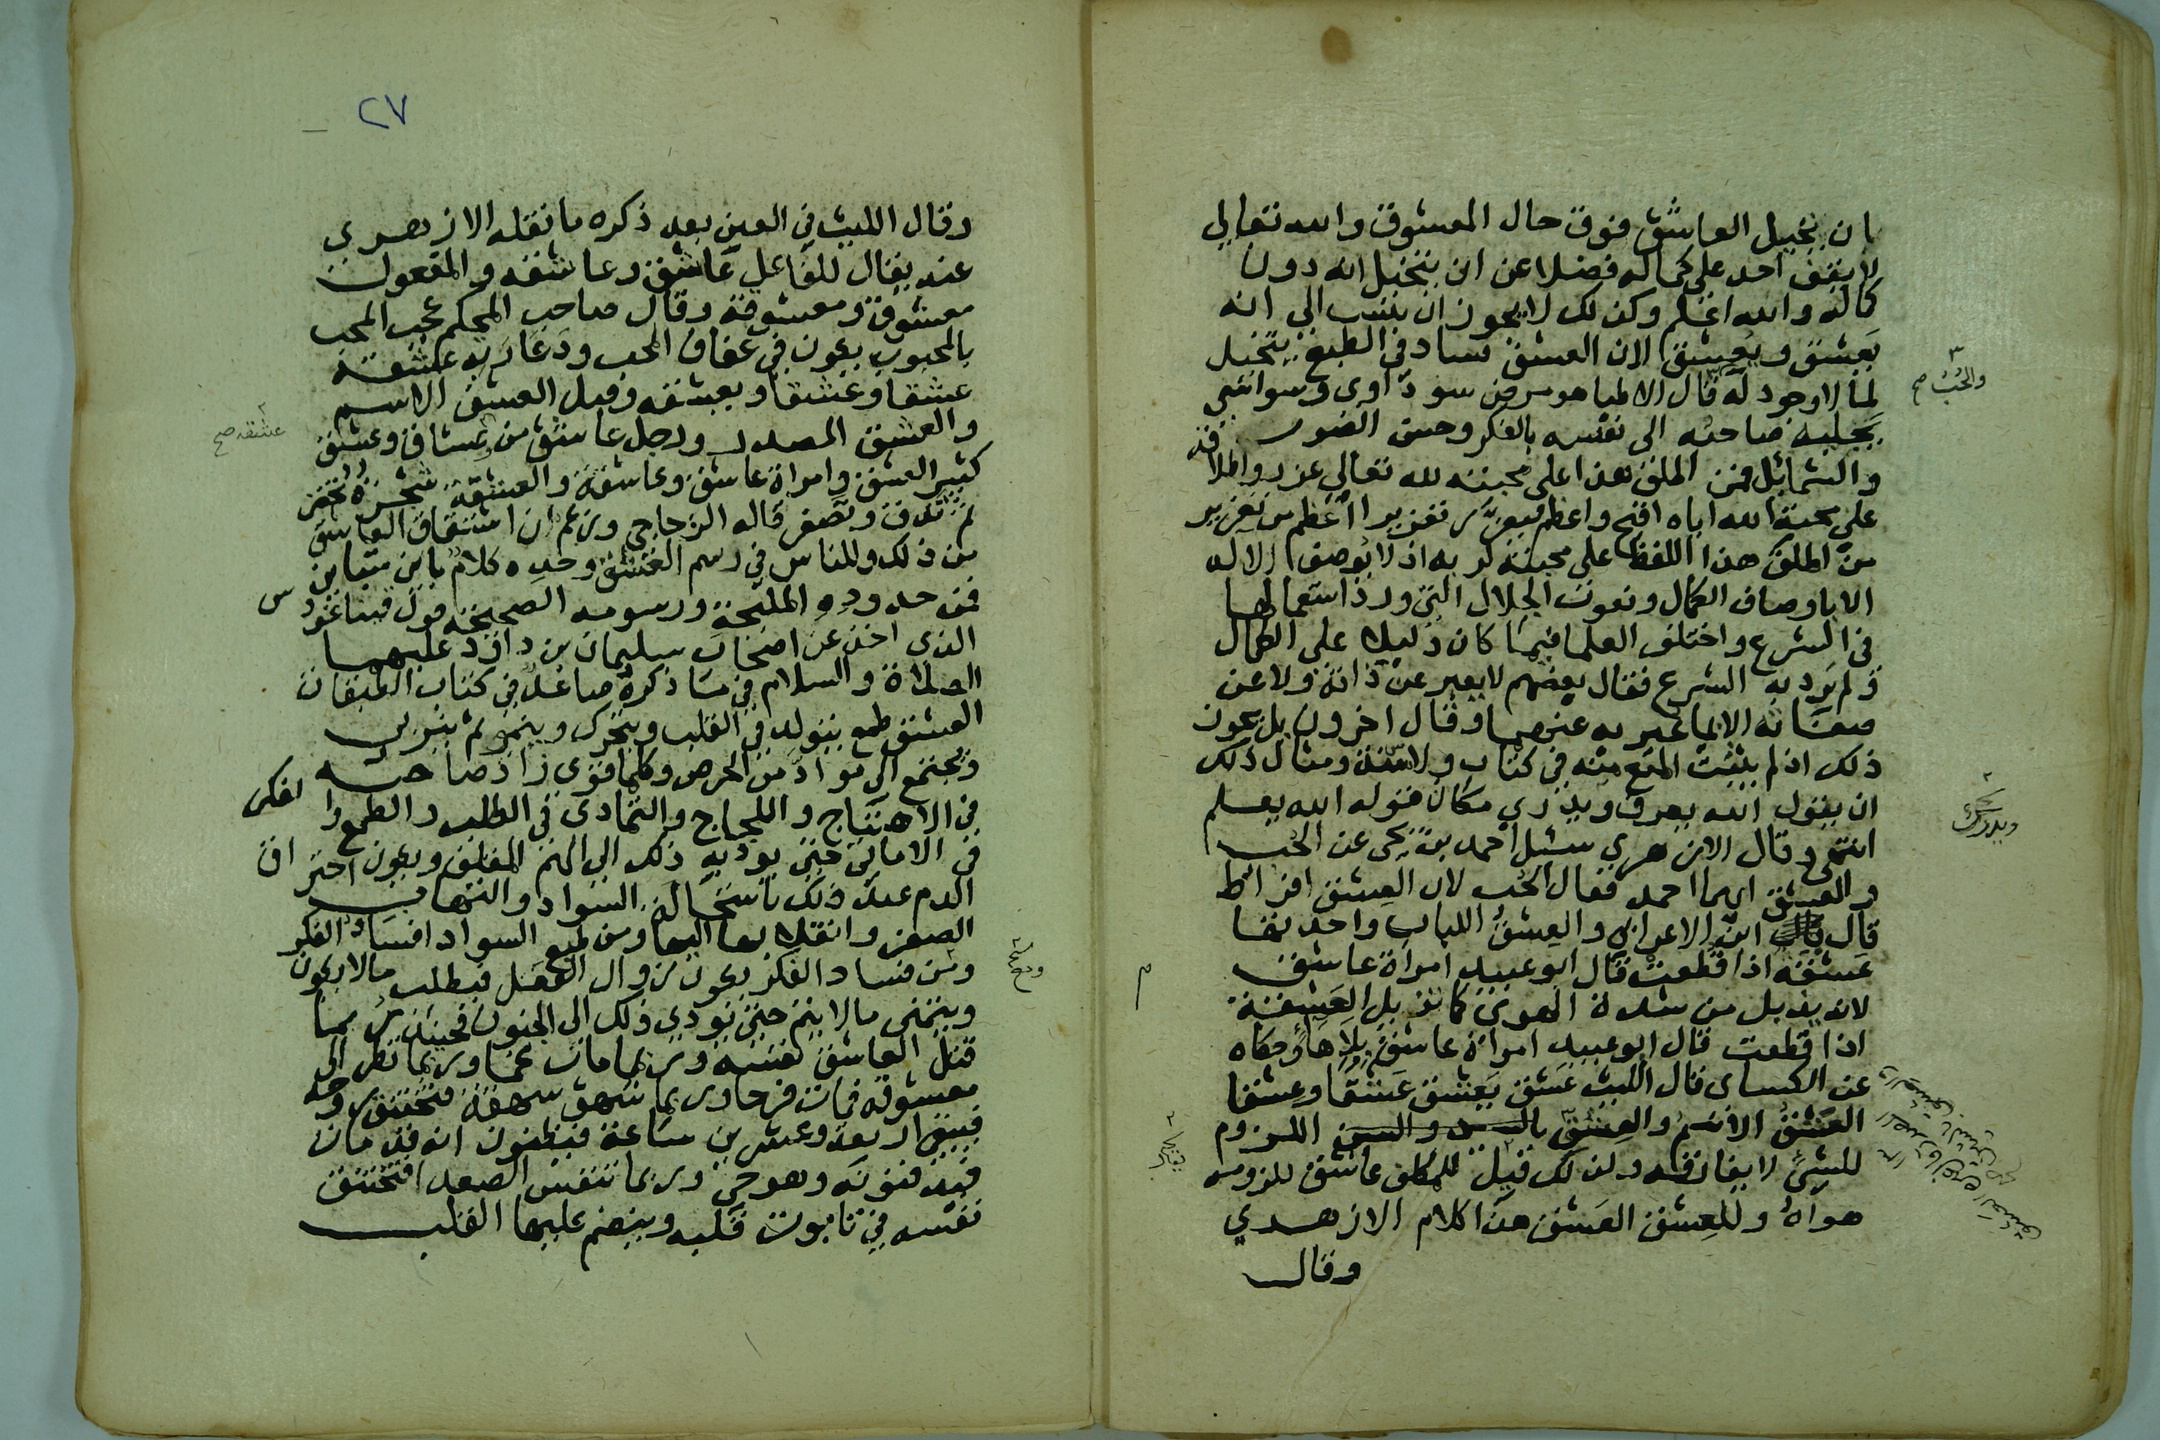 بان يخيل العاشق فوق حال المعشوق والله تعالى
لا يقف احد على كماله فضلا عن ان يتخيل انه دون
كماله والله اعلم وكذلك لا يجوز ان ينسب الى انه
يَعشق ويُعشق لان العشق فساد في الطبع يتخيل
لما لا وجود له قال الاطبا هو مرض سوداوى وسواسى
يجلبه صاحبه الى نفسه بالفكر وحسن الصور
والشمائل فمن اطلق هذا على محبته لله تعالى عزر واطلاقه
على محبة الله اياه اقبح واعظم فيعزر تعزيرا اعظم من تعزير
من اطلق هذا اللفظ على محبته لربه اذ لا يوصف الاله
الا باوصاف الكمال ونعوت الجلال التي ورد استعمالها
في الشرع واختلف العلما فيما كان دليلا على الكمال
ولم يرد به الشرع فقال بعضهم لا يعبر عن ذاته ولا عن
صفاته الا بما عبر به عنهما وقال اخرون بل يجوز
ذلك اذ لم يثبت المنع منه في كتاب ولا سنة ومثال ذلك
ان يقول الله يعرف ويدرى مكان قوله الله يعلم
انتهى وقال الازهري سئل احمد بن يحيى عن الحب
والعشق ايهما احمد فقال الحب لان العشق افراط
قال ابن الاعرابى والعشق اللبلاب واحدتها
عَشَقَه اذا قطعت قال ابو عبيد امراة عاشق
لانه يذبل من شدة الهوى كما تذبل العَشَقة
اذا قطعت قال ابو عبيد امراة عاشق بلا هاء وحكاه
عن الكساى قال الليث عَشِق يَعشق عَشَقا وعِشقا
العَشَق الاسم والعِشق بالسين والسين اللزوم
للشئ لا يفارقه ولذلك قيل للكلف عاشق للزومه
هواه وللعِشق العَشَق هذا كلام الازهري
وقال
والحُبّ صح
٢٧
وقال الليث في العين بعد ذكره ما نقله الازهرى
عنه يقال للفاعل عاشق وعاشقه والمفعول
معشوق ومعشوقة وقال صاحب المحكم عجب المحب
بالمحبوب يكون في عفاف الحب ودعارته عشقه
عشقا وعَشَقا وتعشقه وقيل العشق الاسم
والعشق المصدر ورجل عاشق من عشاق وعشيق
كثير العشق وامراة عاشق وعاشقة والعشقة شجرة تخضر
ثم تدق وتصفر قاله الزجاجي وزعم ان اشتقاق العاشق
من ذلك وللناس في رسم العشق وحده كلام باين متباين
فمن حدوده المليحة ورسومه الصحيحة قول فيثاغورس
الذى اخذ عن اصحاب سليمان بن داود عليهما
الصلاة والسلام في ما ذكره صاعد في كتاب الطبقات
العشق طمع يتولد في القلب ويتحرك وينمو ثم يتربى
ويجتمع الى مواد من الحرص وكلما قوى زاد صاحبه
في الاهتياج واللجاج والتمادى في الطلب والطمع والفكر
في الامانى حتى يوديه ذلك الى الهم المقلق ويكون احتراق
الدم عند ذلك باستحالة السواد والتهاب
الصفرا وانقلابها اليها ومن طبع السوداء فساد الفكر
ومن فساد الفكر يكون زوال العقل فيطلب مالا يكون
ويتمنى مالا يتم حتى يودى ذلك الى الجنون فحينئذ ربما
قتل العاشق نفسه وربما مات غما وربما نظر الى
معشوقه فمات فرحا وربما شهق شهقة فتختنق روحه
فيبقى اربعة وعشرين ساعة فيظنون انه قد مات
فيدفنونه وهو حي وربما تنفس الصعدا فتختنق
نفسه في تابوت قلبه وينضم عليها القلب
عشقه صح